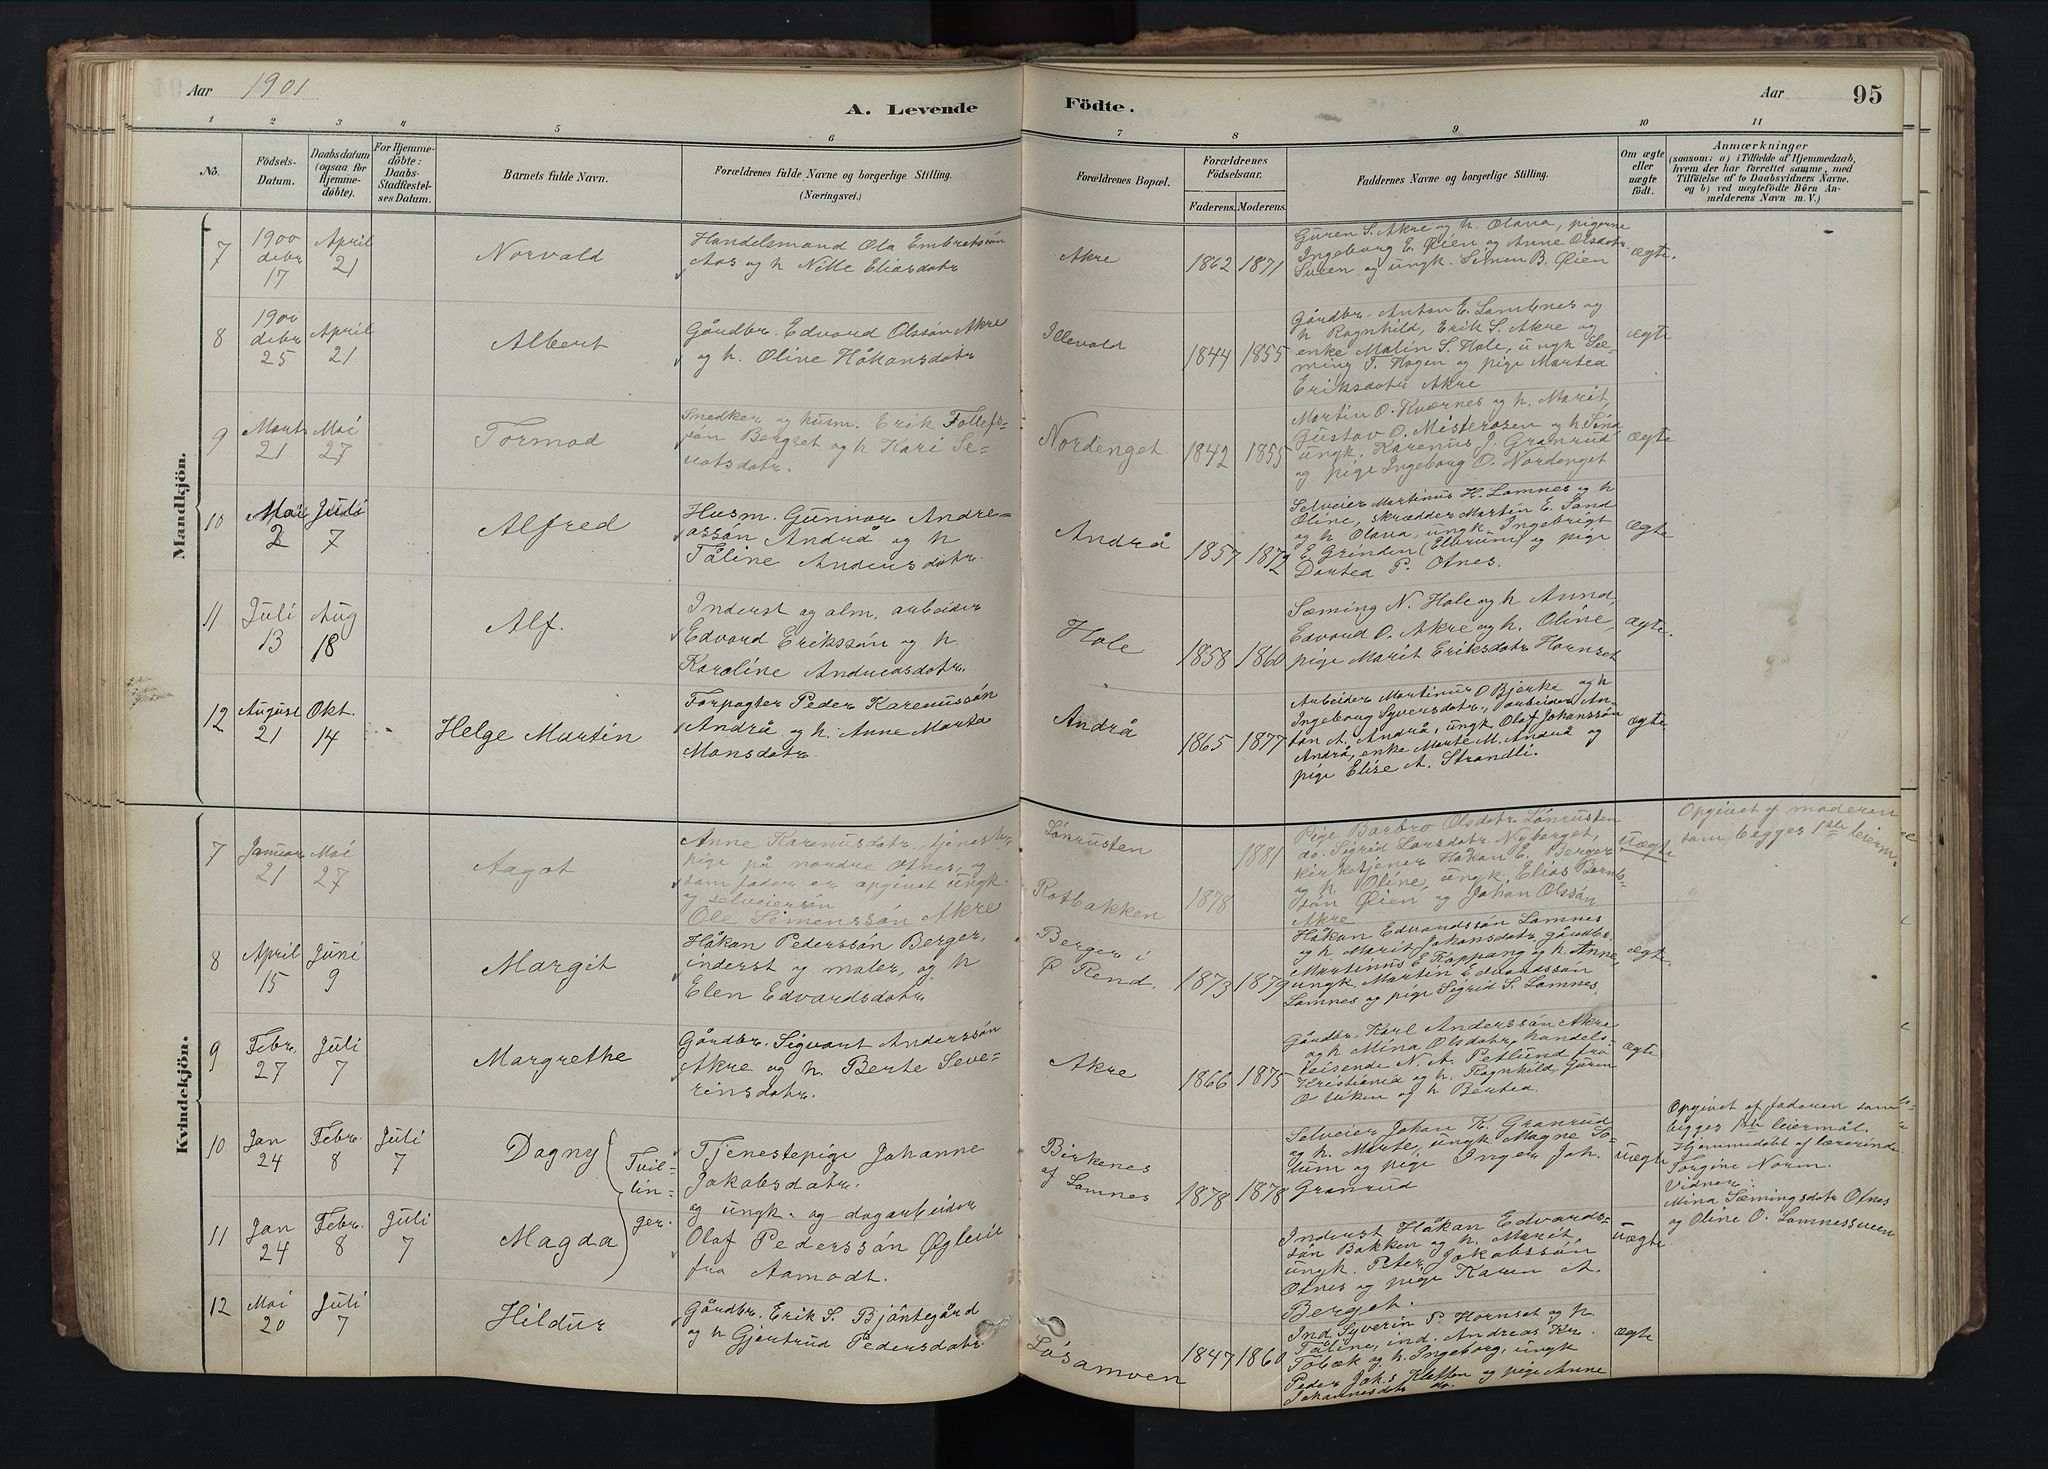 Aar 1901
A. Levende Födte.
Aar 95
1 2 3 4 5 6 7 8 9 10 11
No.
Födsels-Datum.
Daabsdatum (ogsaa for Hjemme-döbte).
For Hjemme-döbte: Daabs-Stadfæstel-ses Datum.
Barnets fulde Navn.
Forældrenes fulde Navne og borgerlige Stilling.
(Næringsvei.)
Forældrenes Bopæl.
Forældrenes Födselsaar.
Faderens. Moderens.
Faddernes Navne og borgerlige Stilling.
Om ægte eller uægte födt.
Anmærkninger
(saasom: a) i Tilfælde af Hjemmedaab,
hvem der har forrettet samme, med
Tilföielse af to Daabsvidners Navne,
og b) ved uægtefödte Börn An-
melderens Navn m. V.)
Mandkjön.
7
1900 debr 17
April 21
Norvald
Handelsmand Ola Embretsön
Aas og h Nille Eliasdatr
Akre
1862 1871
Guren S. Akre og h. Olava, pigerne
Ingeborg E. Øien og Anne Olsdatr
Sveen og ungk. Simen B. Øien
ægte.
8
1900 debr 25
April 21
Albert
Gårdbr. Edvard Olssön Akre
og h. Oline Håkansdatr
Illevold
1844 1855
Gårdbr. Anton E. Lomnes og
h Ragnhild, Erik S. Akre og
enke Malin S. Hole, ungk Sæ-
ming T. Hagen og pige Martea
Eriksdatr Akre
ægte
9
Marts 21
Mai 27
Tormod
Snedker og husm. Erik Tollefs-
sön Berget og h Kari Se-
vatsdatr.
Nordenget
1842 1855
Martin O. Kværnes og h. Marit,
Gustav O. Misterosen og h Sina
ungk. Karenus J. Granrud
og pige Ingeborg O. Nordenget
ægte
10
Mai 2
Juli 7
Alfred
Husm. Gunnar Andre-
assön Andrå og h
Tåline Andersdatr.
Andrå
1857 1872
Selveier Martinus H. Lomnes og h
Oline, skrædder Martin E. Sand
og h Olava, ungk. Ingebrigt
E. Grinden (Elverum) og pige
Dortea P. Otnes.
ægte
11
Juli 13
Aug 18
Alf.
Inderst og alm. arbeider
Edvard Erikssön og h.
Karoline Andreasdatr.
Hole
1858 1860
Sæming N. Hole og h Anna,
Edvard O. Akre og h. Oline,
pige Marit Eriksdatr Hornset
ægte.
12
August 21
Okt. 14
Helge Martin
Forpagter Peder Karenussön
Andrå og h. Anne Marta
Monsdatr.
Andrå
1865 1877
Arbeider Martinus O Bjerke og h
Ingeborg Syversdatr., arbeider An-
ton A. Andrå, ungk. Olaf Johanssön
Andrå, enke Marte M. Andrå og
pige Elise A. Strandli.
ægte
Kvindekjön.
7
Januar 21
Mai 27
Aagot
Anne Karenusdatr, tjeneste-
pige på nordre Otnes, og
som fader er opgivet ungk.
og selveiersön
Ole Simenssön Akre
Lönrusten
Rotbakken
1878 1881
Pige Barbro Olsdatr Lönrusten
do. Sigrid Larsdatr Nyberget,
kirketjener Håkan E. Berger
og h Oline, ungk. Elias Bernts-
sön Øien og Johan Olssön
Akre
uægte
Opgivet af moderen
som begges 1ste leierm.
8
April 15
Juni 9
Margit
Håkan Pederssön Berger,
inderst og maler, og h
Elen Edvardsdatr
Berger i
Ø Rend.
1873 1879
Håkan Edvardssön Lomnes
og h Marit Jakobsdatr, gårdbr.
Martinus E Rappang og h Anne,
ungk. Martin Edvardssön
Lomnes og pige Sigrid S. Lomnes.
ægte.
9
Febr. 27
Juli 7
Margrethe
Gårdbr. Sigvart Anderssön
Akre og h. Berte Seve-
rinsdatr.
Akre
1866 1875
Gårdbr. Karl Anderssön Akre
og h Mina Olsdatr, handels-
reisende N. A. Petlund fra
Kristiania og h. Ragnhild, Guren
O Viken og h Bertea.
ægte
10
Jan 24
Febr. 8
Juli 7
Dagny
Tvil-
lin-
ger.
Tjenestepige Johanne
Jakobsdatr.
og ungk. og dagarbeider
Olaf Pederssön Øgleli
fra Aamodt.
Birkenes
af Lomnes
1878 1878
Selveier Johan K. Granrud
og h. Marte, ungk. Magne So-
lum og pige Inger Joh.
Granrud
uægte
Opgivet af faderen som
begges 1ste leiermål.
Hjemmedöbt af lærerinde
Torgine Noren.
Vidner:
Mina Sæmingsdatr Otnes
og Oline O. Lomnessveen
11
Jan 24
Febr. 8
Juli 7
Magda
Inderst Håkan Edvards-
sön Bakken og h. Marit,
ungk. Peter Jakobssön
Otnes og pige Karen A.
Berget.
uægte
12
Mai 20
Juli 7
Hildur
Gårdbr. Erik S. Bjöntegård
og h Gjertrud Pedersdatr.
Lösamoen
1847 1860
Ind. Syverin P Hornset og h.
Tåline, ind. Andreas Kr.
Tobæk og h. Ingeborg, ungk
Peder Jak.s Kletten og pige Anne
Johannesdatr do.
ægte